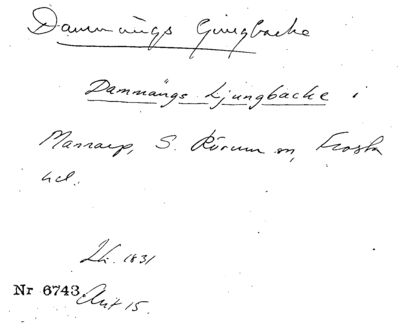 Dammängs Gingbacke
Dammängs Ljungbacke i
Massarp, S. Rörum sn, Frosta
hd.
Lk. 1831
Nr 6743. Akt 15.